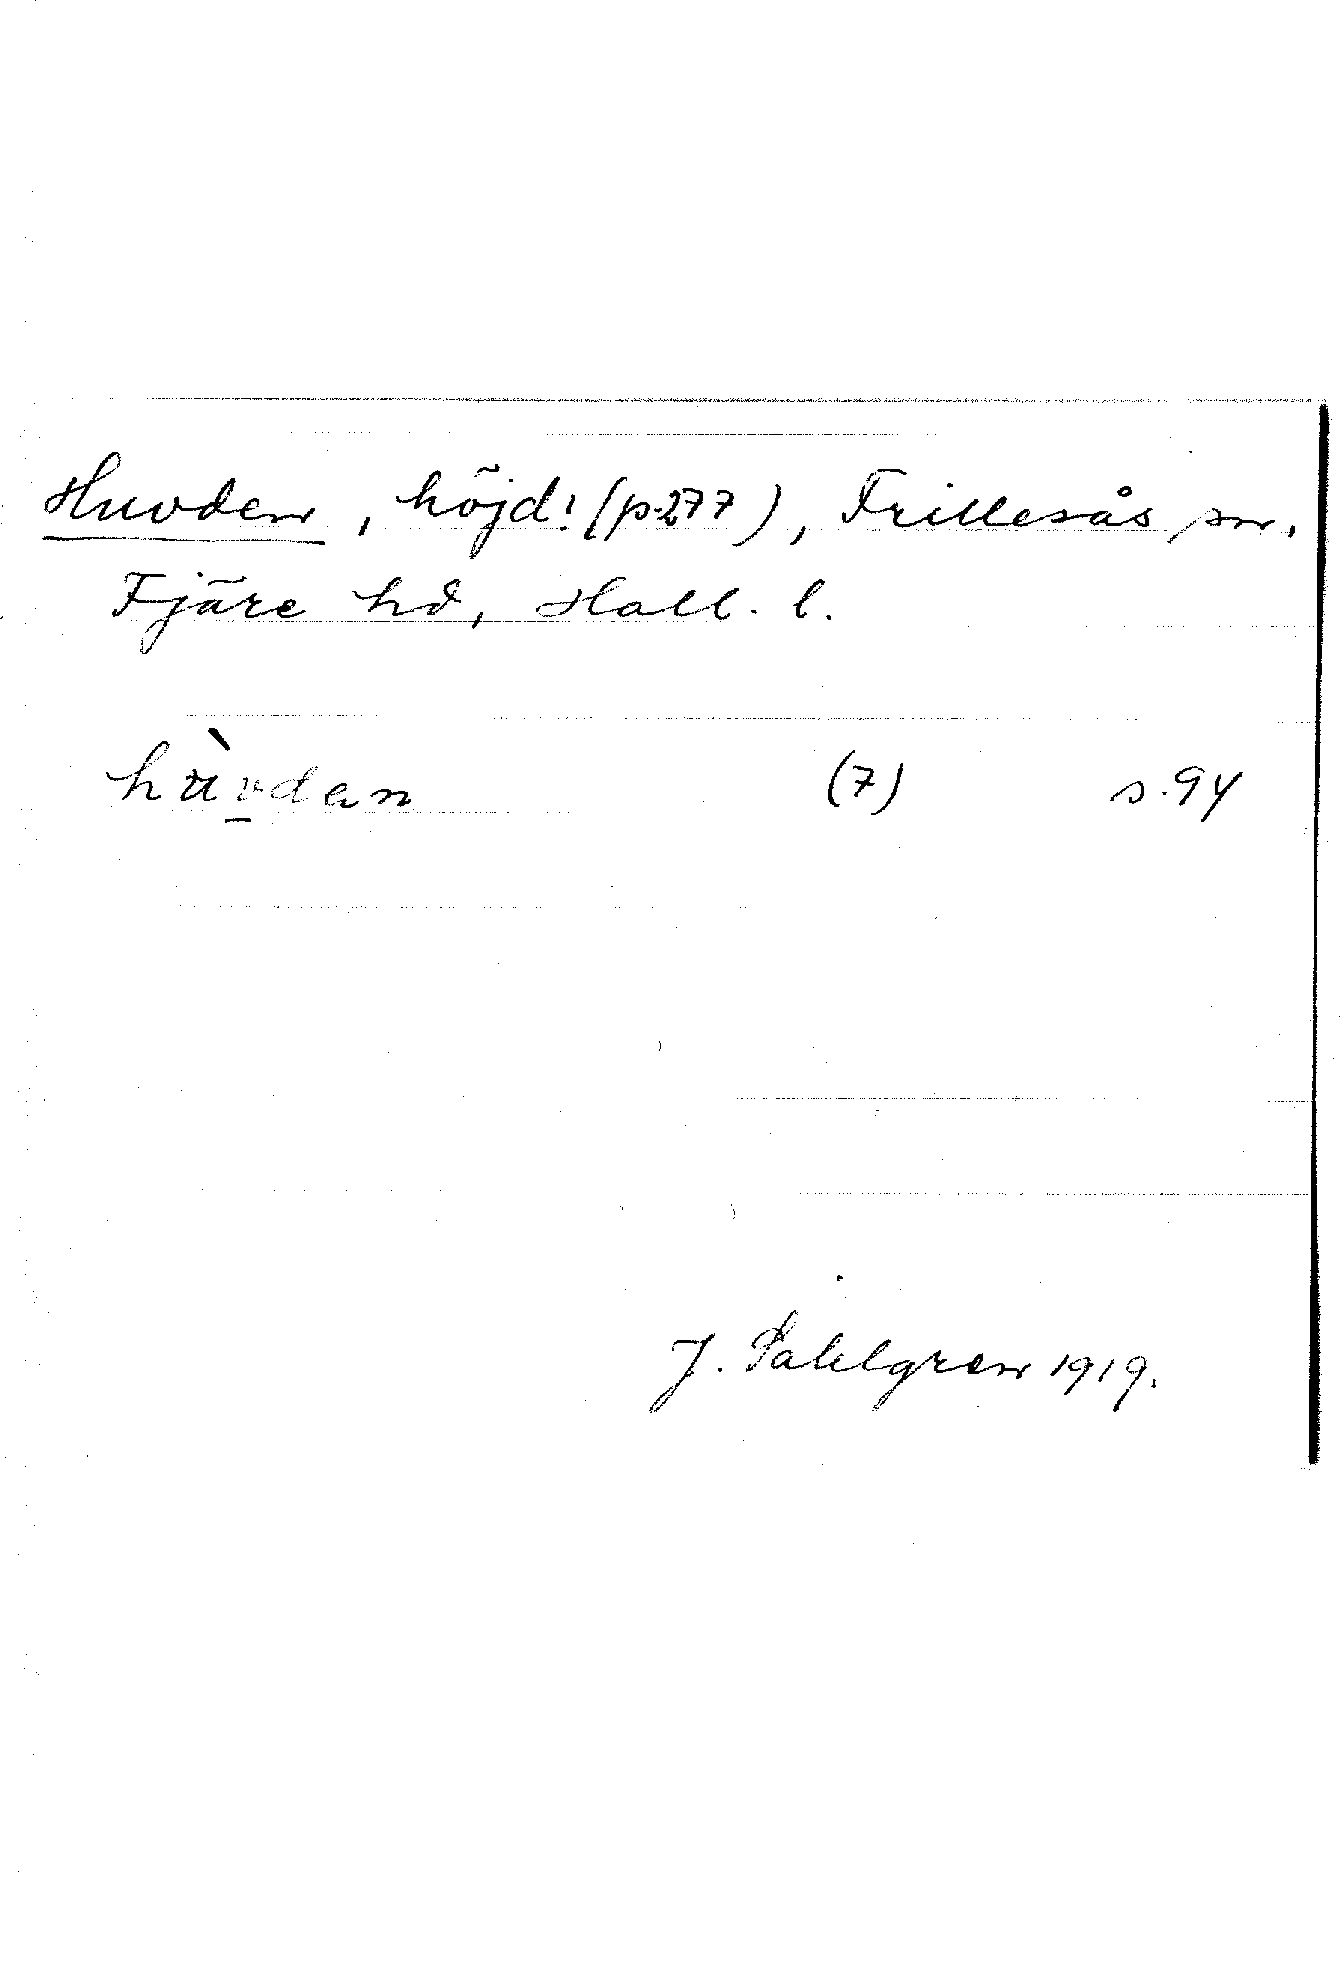 Huvden, höjd! (p.277), Frillesås sn.
Fjäre hd, Hall. l.
hùv̲dan (7) s.94
J. Sahlgren 1919.